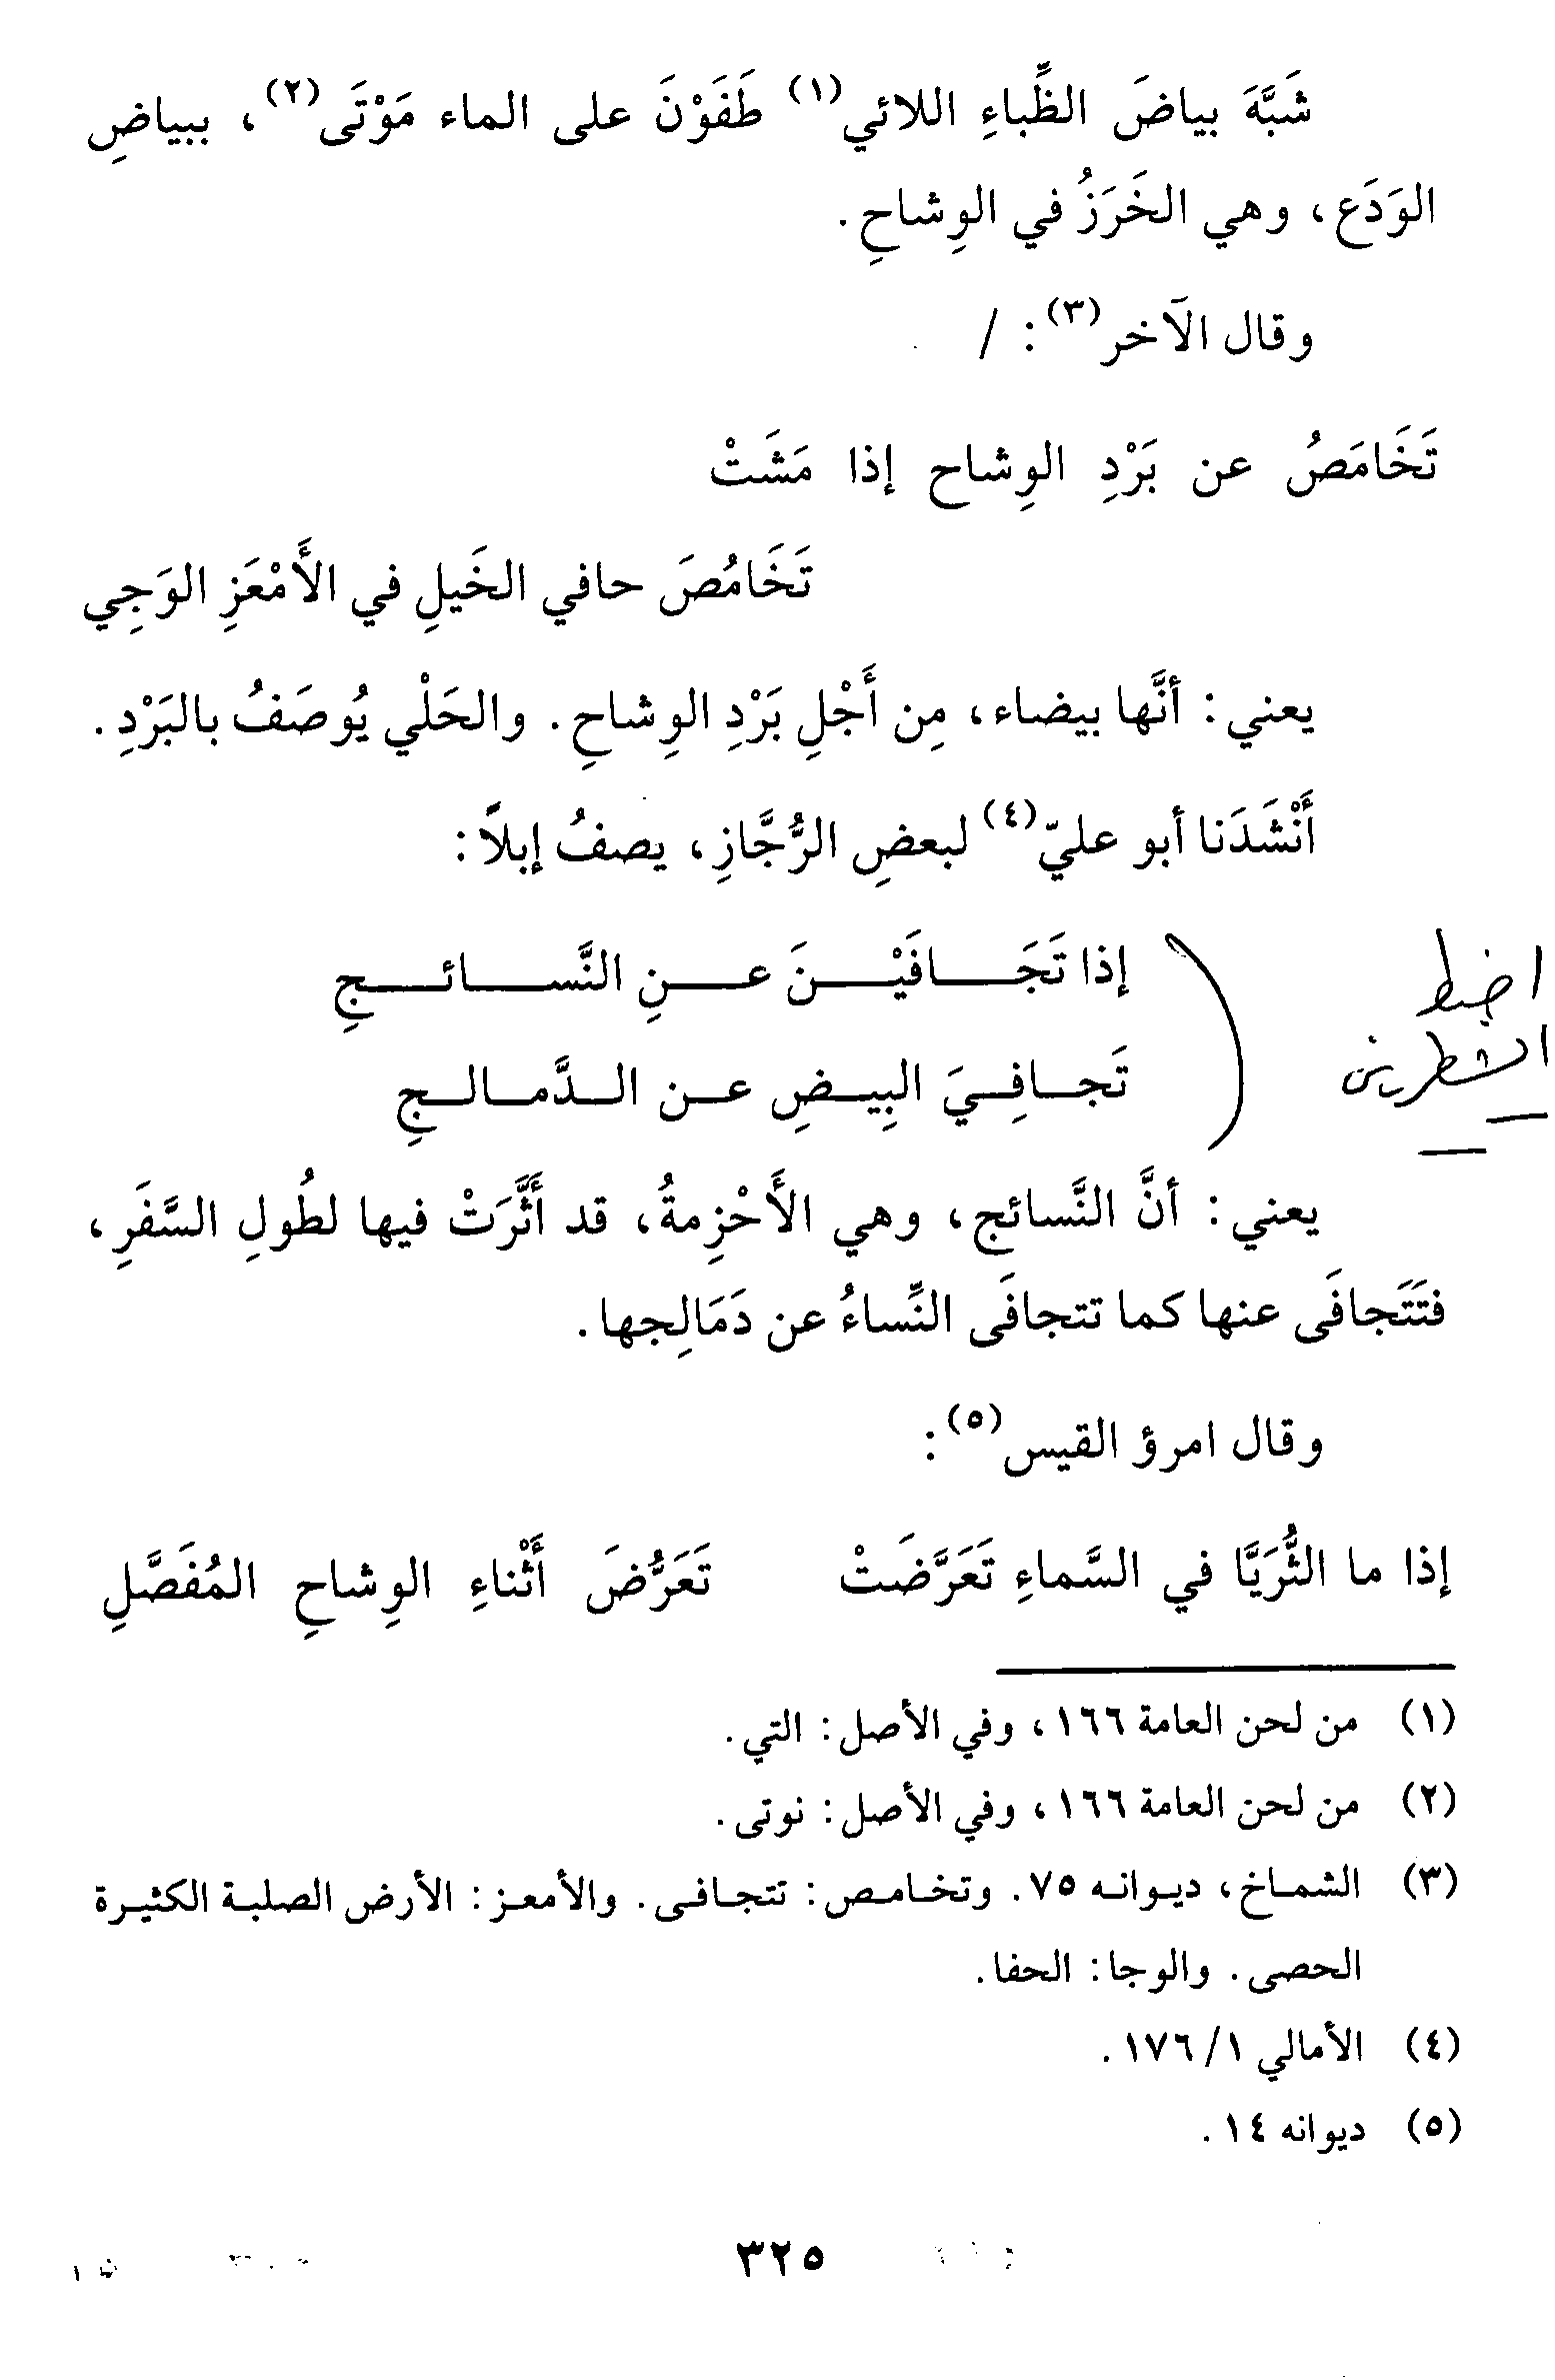 شَبَّهَ بياضَ الظِّباءِ اللائي(١) طَفَوْنَ على الماء مَوْتَى(٢)، ببياضِ
الوَدَع، وهي الخَرَزُ في الوِشاحِ.
وقال الآخر(٣): /
تَخَامَصُ عن بَرْدِ الوِشاح إذا مَشَتْ
تَخَامُصَ حافي الخَيلِ في الأَمْعَزِ الوَجِي
يعني: أنَّها بيضاء، مِن أَجْلِ بَرْدِ الوِشاحِ. والحَلْي يُوصَفُ بالبَرْدِ.
أَنْشَدَنا أبو عليّ(٤) لبعضِ الرُّجَّازِ، يصفُ إبلاً:
إذا تَجَـافَيْـنَ عـنِ النَّسـائـجِ
اضبط
تَجـافِـيَ البِيـضِ عـن الـدَّمـالـجِ
الشطرين
يعني: أنَّ النَّسائج، وهي الأَحْزِمةُ، قد أَثَّرَتْ فيها لطُولِ السَّفَرِ،
فتَتَجافَى عنها كما تتجافَى النِّساءُ عن دَمَالِجها.
وقال امرؤ القيس(٥):
إذا ما الثُّرَيَّا في السَّماءِ تَعَرَّضَتْ تَعَرُّضَ أَثْناءِ الوِشاحِ المُفَصَّلِ
(١) من لحن العامة ١٦٦، وفي الأصل: التي.
(٢) من لحن العامة ١٦٦، وفي الأصل: نوتى.
(٣) الشمـاخ، ديـوانـه ٧٥. وتخـامـص: تتجـافـى. والأمعـز: الأرض الصلبـة الكثيـرة
الحصى. والوجا: الحفا.
(٤) الأمالي ١/ ١٧٦.
(٥) ديوانه ١٤.
٣٢٥